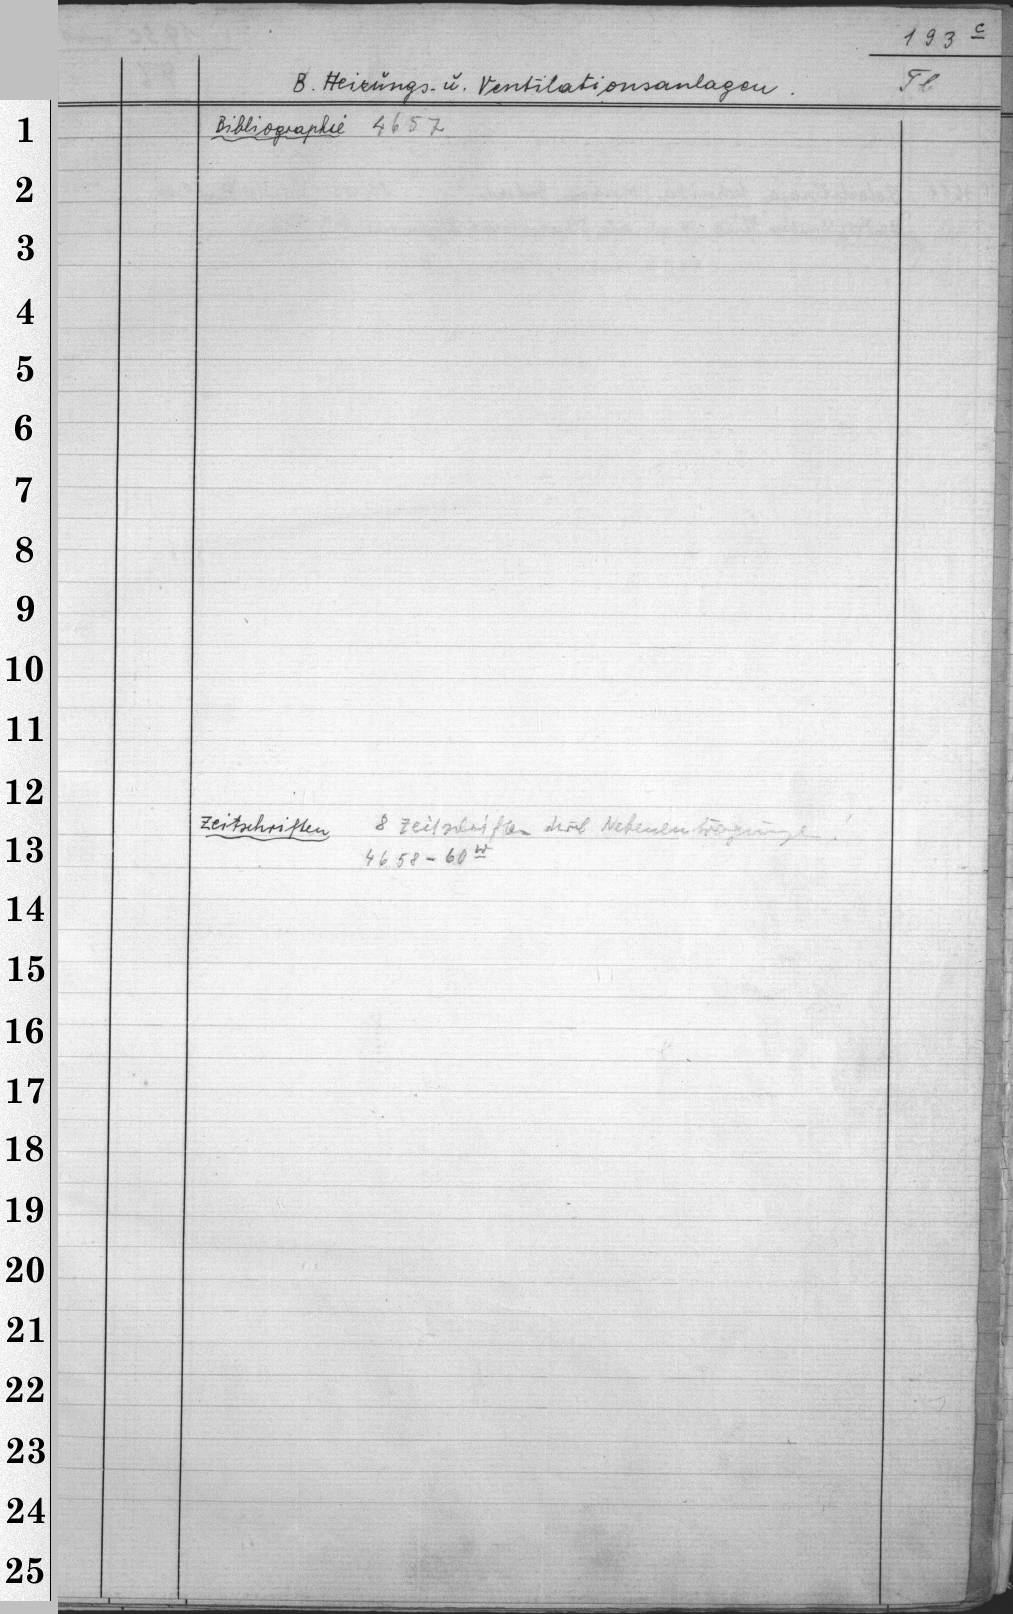 193 c
B. Heizungs- u. Ventilationsanlagen. Tb
1 Bibliographie 4657
2
3
4
5
6
7
8
9
10
11
12
Zeitschriften 8 Zeitschriften und Nebeneintragungen!
13 4658-60 w
14
15
16
17
18
19
20
21
22
23
24
25